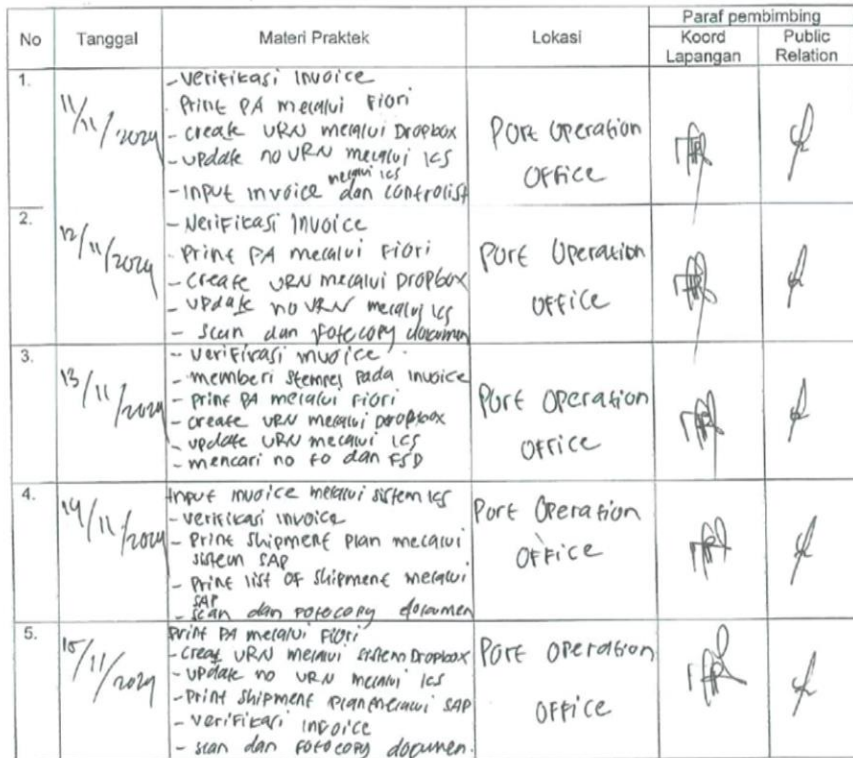 No Tanggal Materi Praktek Lokasi Paraf pembimbing
Koord Lapangan Public Relation
1. 11/11/2024
- Verifikasi Invoice
- Print PA melalui Fiori
- create URN melalui Dropbox
- update no URN melalui ICS
melalui ICS
- Input invoice dan controlist
Port Operation
Office
2. 12/11/2024
- Verifikasi Invoice
- Print PA melalui Fiori
- create URN melalui Dropbox
- update no URN melalui ICS
- Scan dan fotocopy documen
Port Operation
Office
3. 13/11/2024
- Verifikasi invoice
- memberi stempel pada invoice
- print PA melalui Fiori
- create URN melalui Dropbox
- update URN melalui ICS
- mencari no FO dan FSD
Port Operation
Office
4. 14/11/2024
Input invoice melalui sistem ICS
- Verifikasi invoice
- Print Shipment Plan melalui
sistem SAP
- Print list of Shipment melalui
SAP
- Scan dan fotocopy documen
Port Operation
Office
5. 15/11/2024
Print PA melalui Fiori
- Creat URN melalui sistem Dropbox
- update no URN melalui ICS
- Print Shipment Plan melalui SAP
- Verifikasi invoice
- scan dan fotocopy documen.
Port Operation
Office